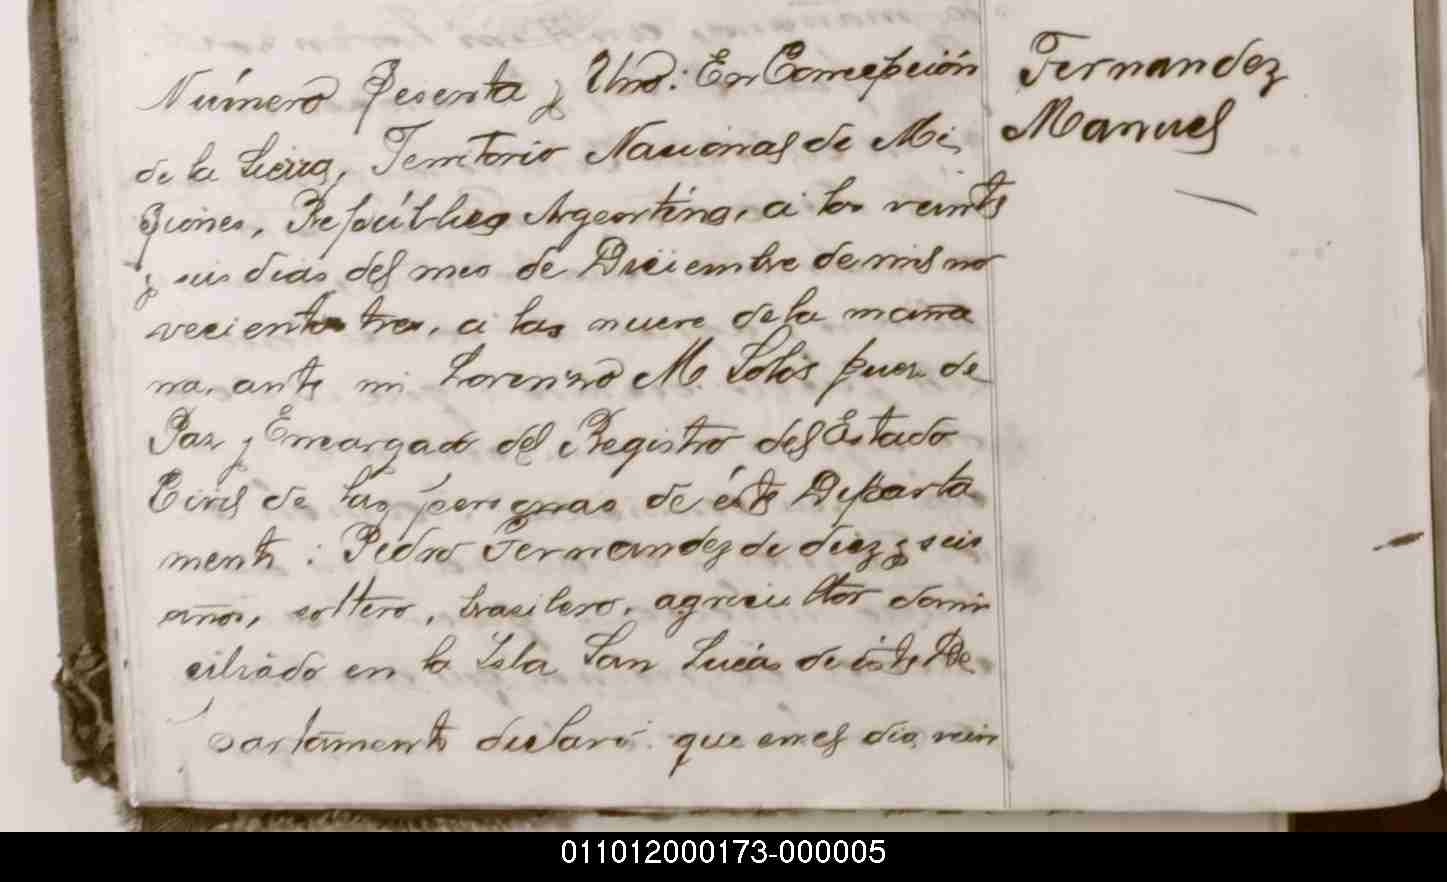 Número Sesenta y Uno: En Concepción
de la Sierra, Territorio Nacional de Mi
siones, República Argentina, a los veinte
y seis dias del mes de Diciembre de mil no
vecientos tres, a las nueve de la maña
na, ante mi Lorenzo M. Solis Juez de
Paz y Encargado del Registro del Estado
Civil de las personas de éste Departa
mento: Pedro Fernandez de diez y seis
años, soltero, brasilero, agricultor domi
ciliado en la Isla San Lucas de éste De
partamento declaró: que en el dia vein
Fernandez
Manuel
011012000173-000005